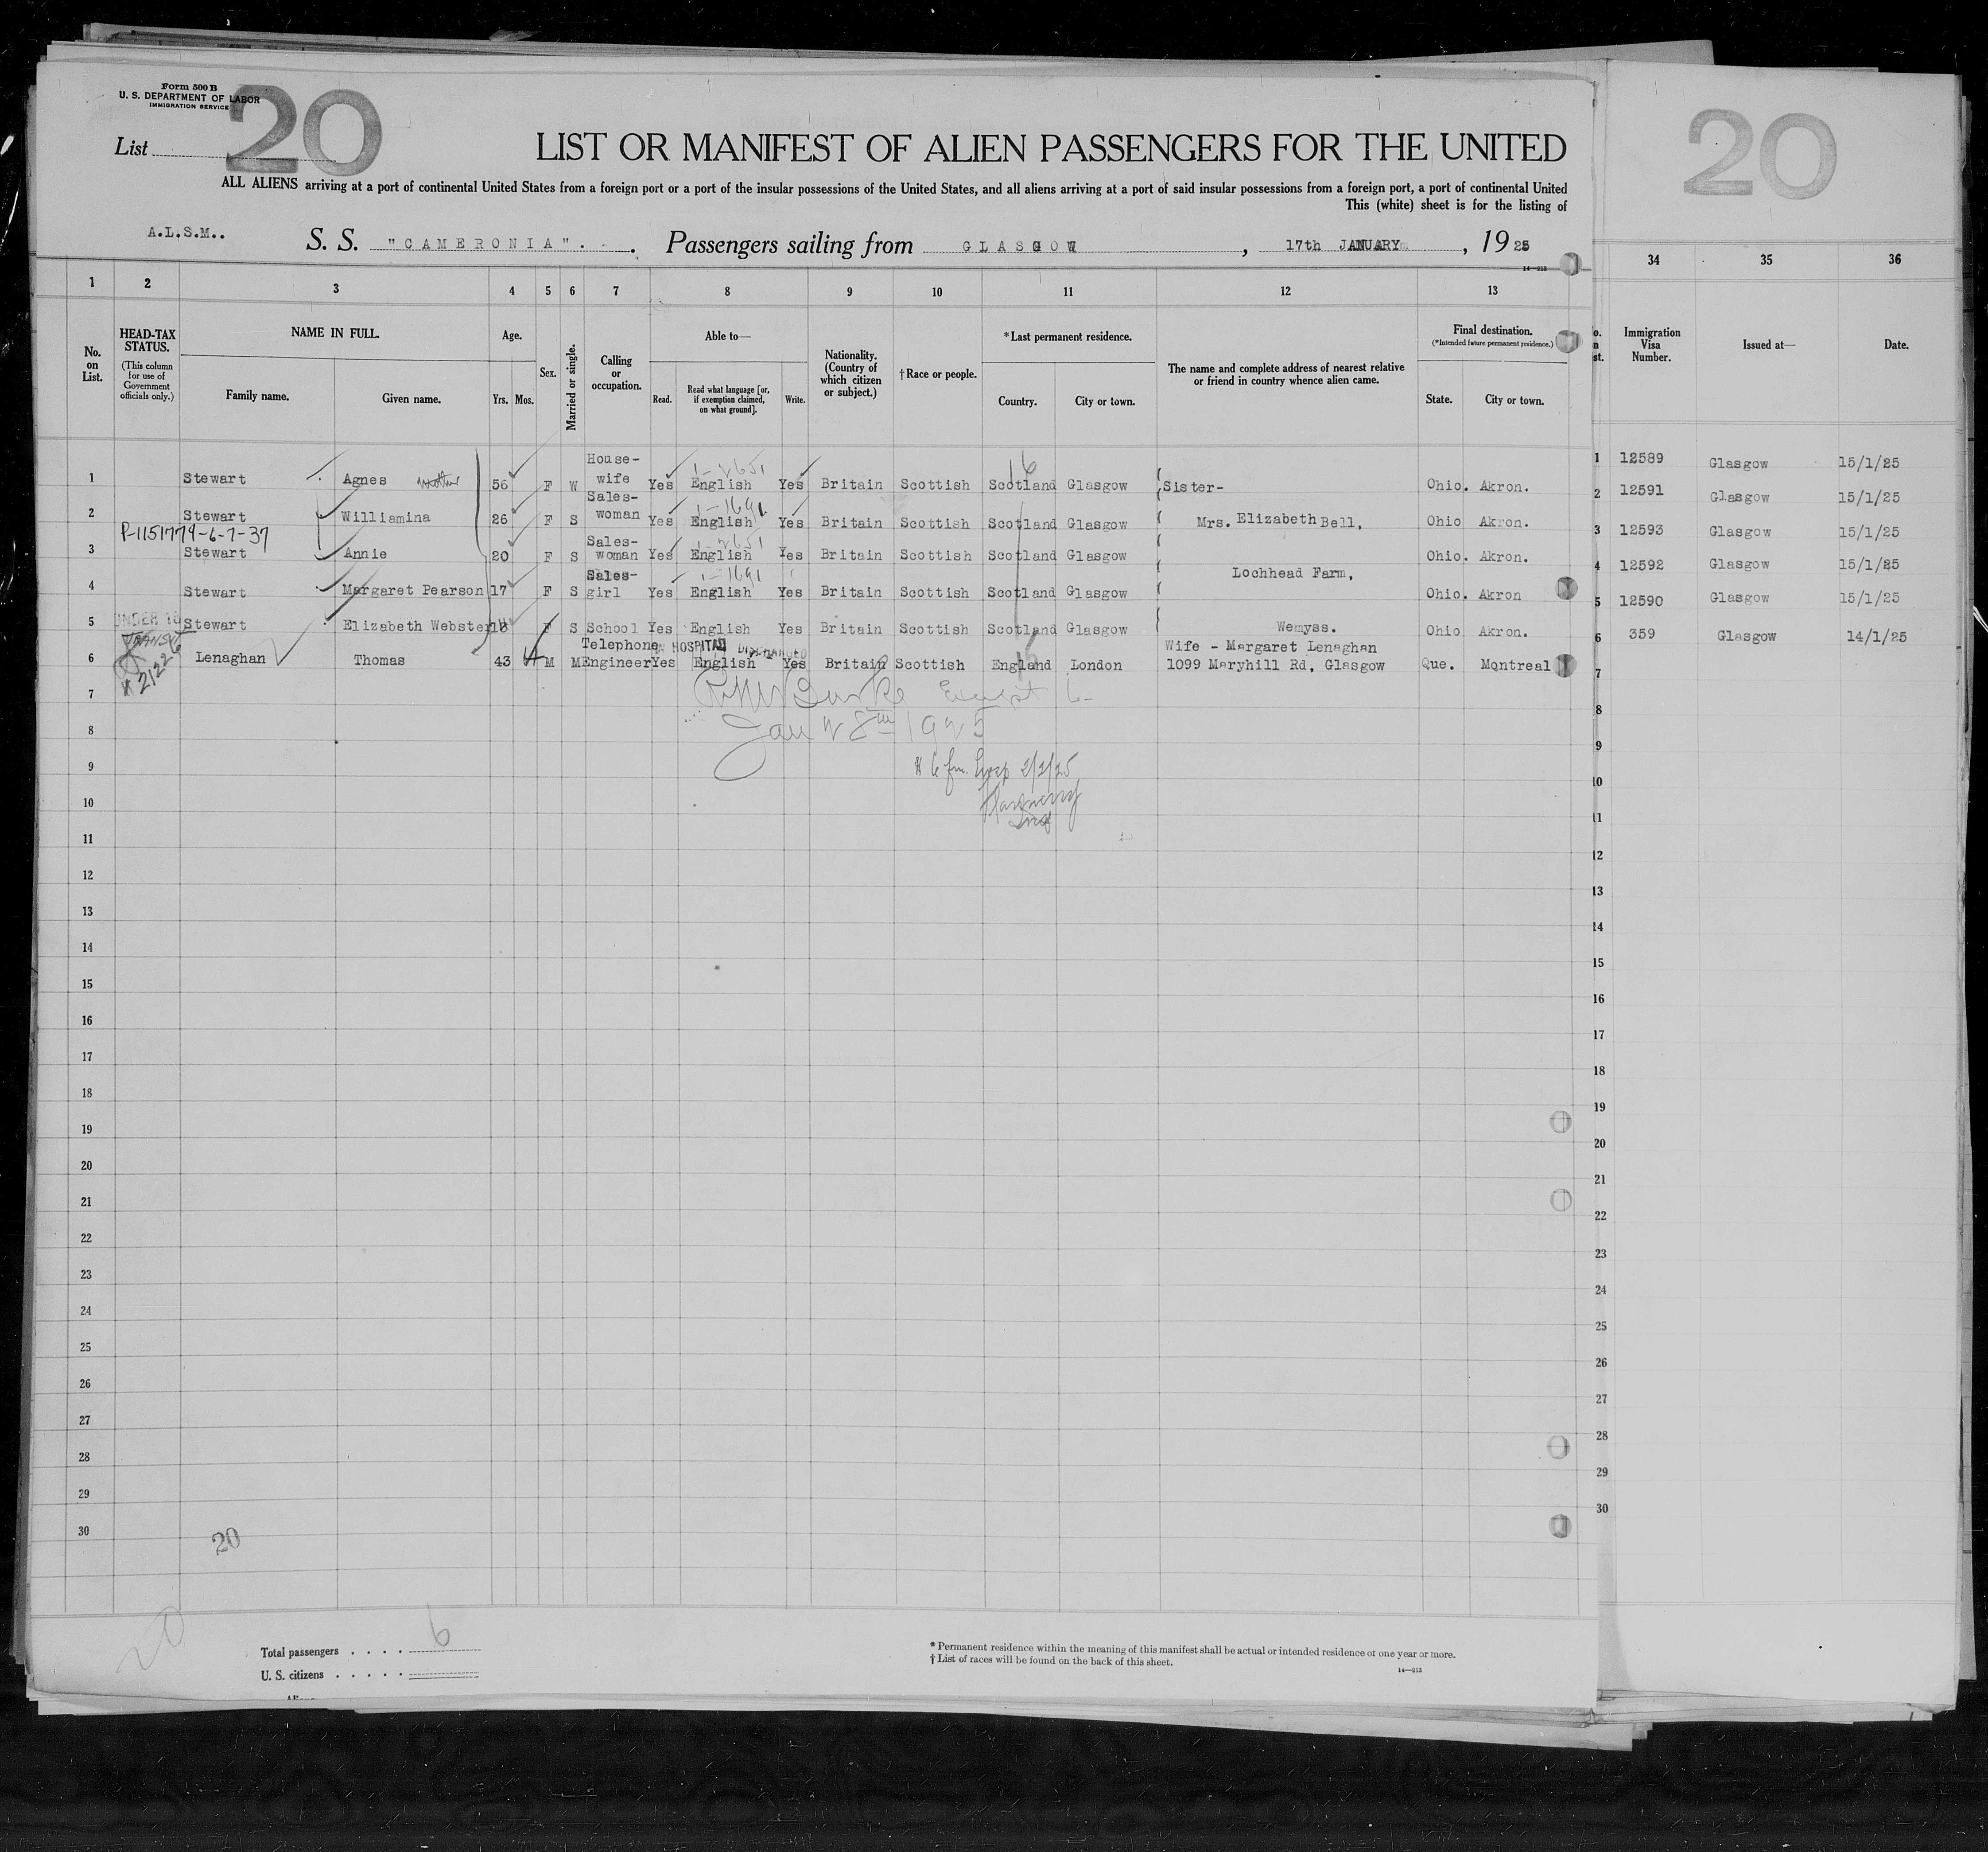 Form 500 B
U. S. DEPARTMENT OF LABOR
IMMIGRATION SERVICE
List 20
20
LIST OR MANIFEST OF ALIEN PASSENGERS FOR THE UNITED
ALL ALIENS arriving at a port of continental United States from a foreign port or a port of the insular possessions of the United States, and all aliens arriving at a port of said insular possessions from a foreign port, a port of continental United
This (white) sheet is for the listing of
A.L.S.M..
S. S. "CAMERONIA". Passengers sailing from GLASGOW, 17th JANUARY, 1925
14—213
1 2 3 4 5 6 7 8 9 10 11 12 13 34 35 36
No. on List.
HEAD-TAX STATUS.
(This column for use of Government officials only.)
NAME IN FULL.
Family name. Given name.
Age.
Yrs. Mos.
Sex.
Married or single.
Calling or occupation.
Able to—
Read. Read what language [or, if exemption claimed, on what ground]. Write.
Nationality. (Country of which citizen or subject.)
†Race or people.
*Last permanent residence.
Country. City or town.
The name and complete address of nearest relative or friend in country whence alien came.
Final destination.
(*Intended future permanent residence.)
State. City or town.
Immigration Visa Number.
Issued at—
Date.
16
1-2651
1 Stewart Agnes mother 56 F W House-wife Yes English Yes Britain Scottish Scotland Glasgow Sister- Ohio. Akron. 1 12589 Glasgow 15/1/25
1-1691
2 Stewart Williamina 26 F S Sales-woman Yes English Yes Britain Scottish Scotland Glasgow Mrs. Elizabeth Bell, Ohio Akron. 2 12591 Glasgow 15/1/25
P-1151774-6-7-37
1-2651
3 Stewart Annie 20 F S Sales-woman Yes English Yes Britain Scottish Scotland Glasgow Ohio. Akron. 3 12593 Glasgow 15/1/25
1-1691
Lochhead Farm,
4 Stewart Margaret Pearson 17 F S Sales-girl Yes English Yes Britain Scottish Scotland Glasgow Ohio. Akron 4 12592 Glasgow 15/1/25
UNDER 16
5 Stewart Elizabeth Webster F S School Yes English Yes Britain Scottish Scotland Glasgow Wemyss. Ohio Akron. 5 12590 Glasgow 15/1/25
TRANSIT
IN HOSPITAL DISCHARGED
15
6 Lenaghan Thomas 43 M M Telephone Engineer Yes English Yes Britain Scottish England London Wife - Margaret Lenaghan 1099 Maryhill Rd, Glasgow Que. Montreal 6 359 Glasgow 14/1/25
7 7
Burke Except 6-
8 8
Jan 28th 1925
9 9
# 6 fm. Hosp 2/2/25
10 10
Insp
11 11
12 12
13 13
14 14
15 15
16 16
17 17
18 18
19 19
20 20
21 21
22 22
23 23
24 24
25 25
26 26
27 27
28 28
29 29
30 30
20
20
Total passengers . . . . 6
U. S. citizens . . . . .
* Permanent residence within the meaning of this manifest shall be actual or intended residence of one year or more.
† List of races will be found on the back of this sheet.
14—213